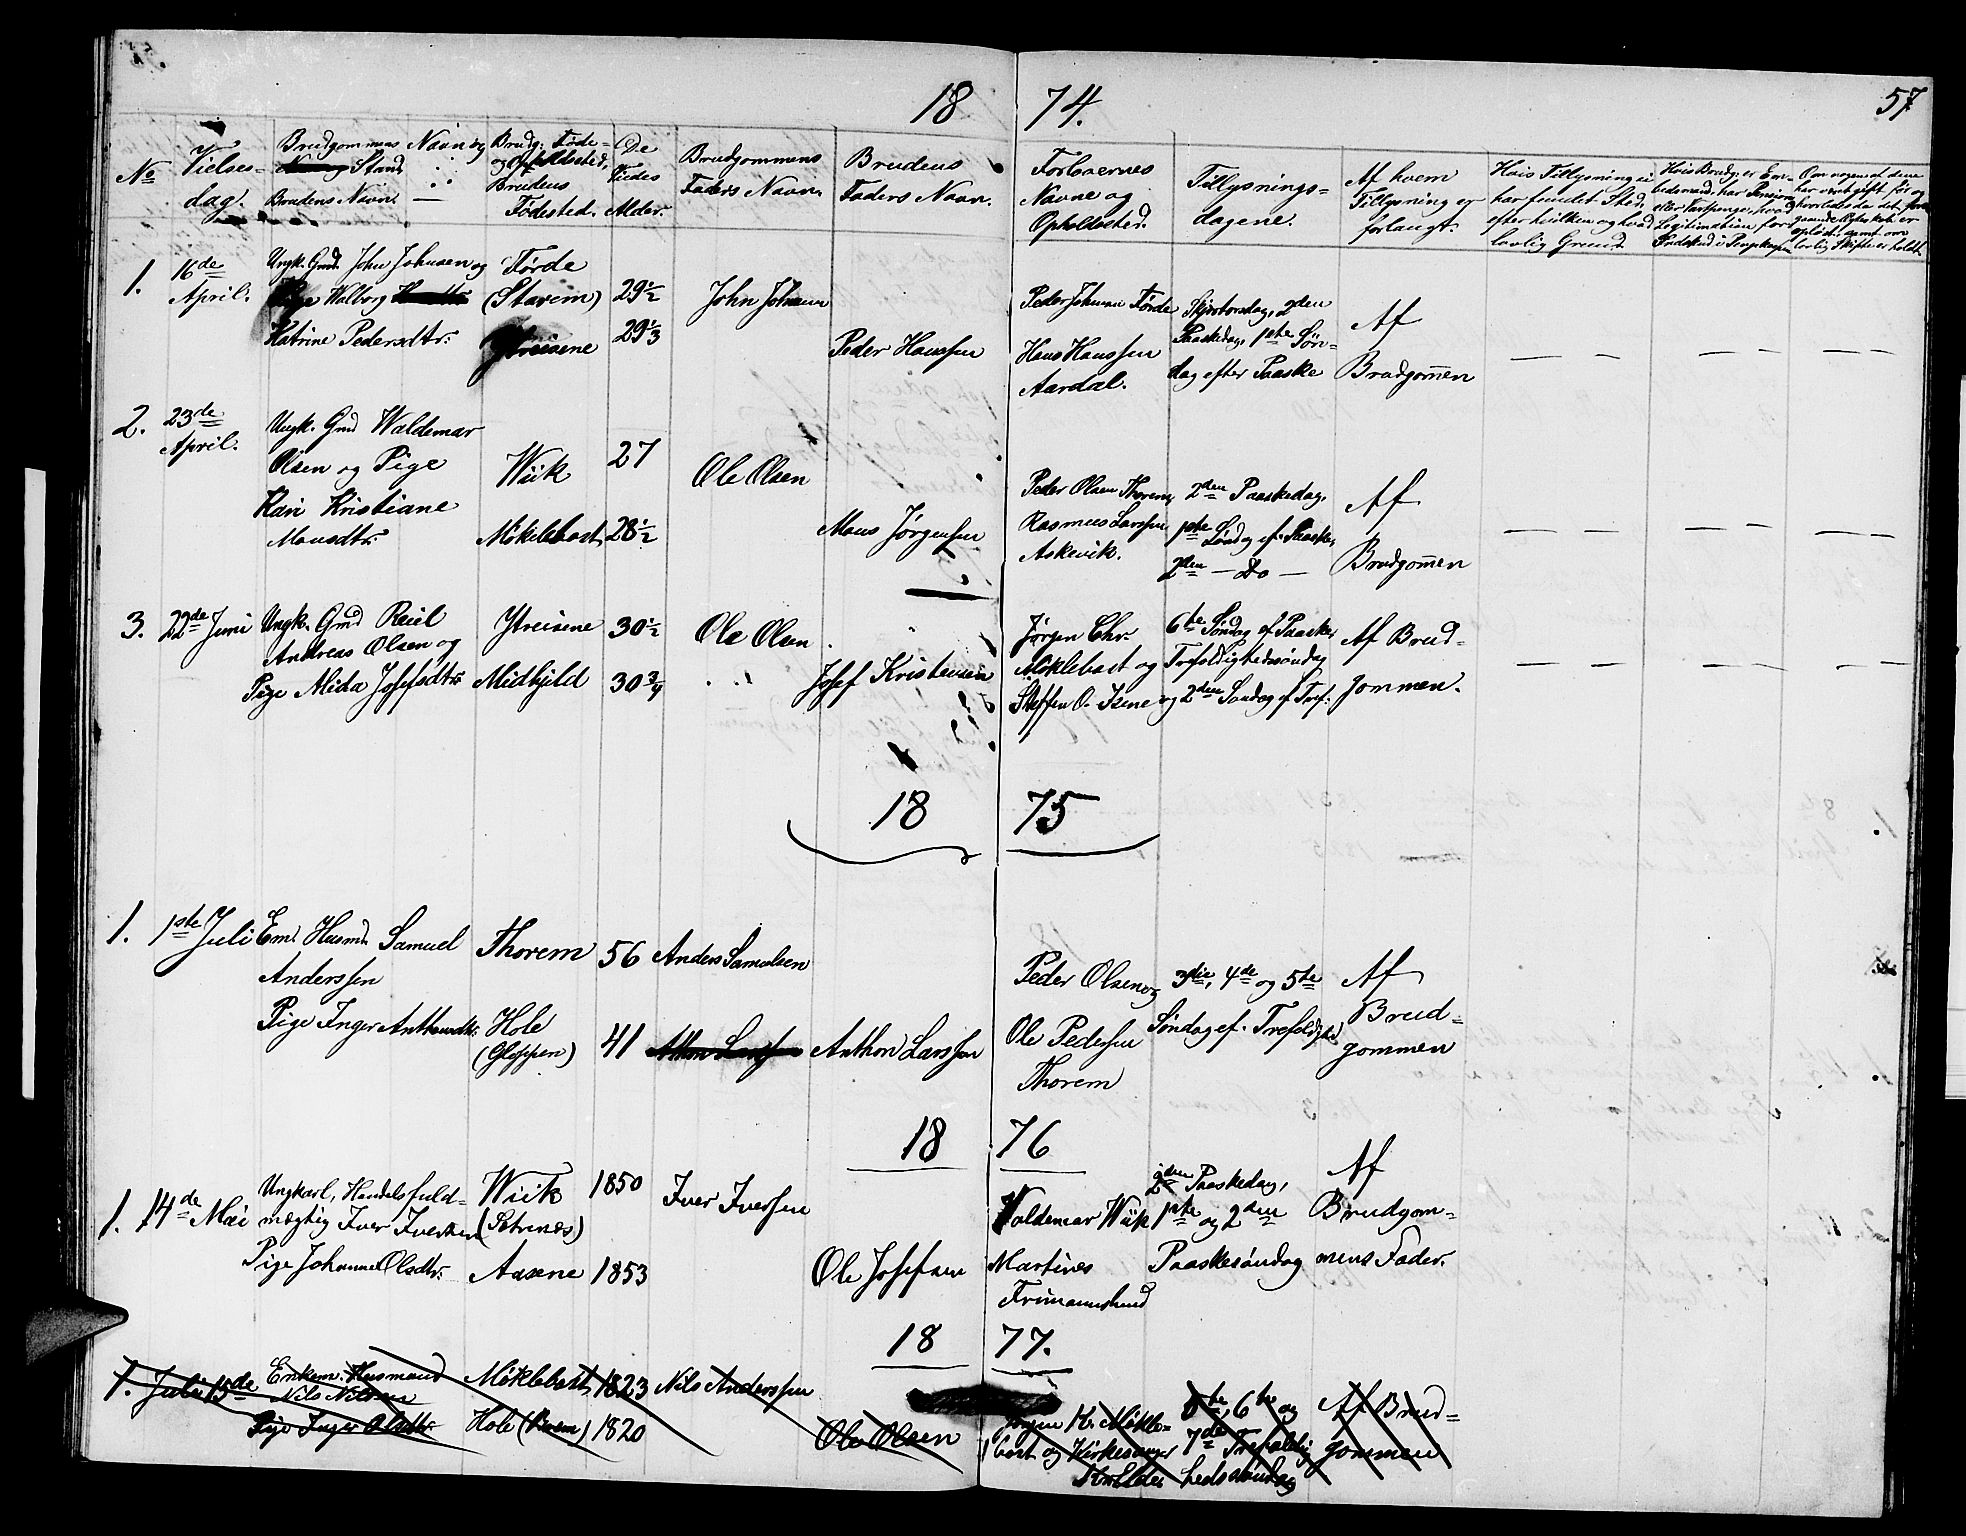 18 74. 57
No
Vielses-
dag.
Brudgommens Navn og
Stand
Brudens Navn.
Brudg. Føde-
og Opholdssted,
Brudens
Fødested.
De
Viedes
Alder.
Brudgommens
Faders Navn.
Brudens
Faders Navn.
Forlovernes
Navne og
Opholdssted.
Tillysnings-
dagene.
Af hvem
Tillysning er
forlangt.
Hvis Tillysning ei
har fundet Sted,
efter hvilken og hvad
lovlig Grund.
Hvis Brudg. er Em-
bedsmand, har
Legitimation for
Om nogen af dem
har været gift før og
1. 16de
April.
Ungk. Gmd. John Johnsen og
Pige Walborg
Katrine Pedersdtr.
Førde
(Stavem)
Ytreisene
29½
29⅓
John Johnsen
Peder Hanssen
Peder Johnsen Førde
Hans Hanssen
Aardal.
Skjærtorsdag, 2den
Paaskedag, 1ste Søn-
dag efter Paaske
Af
Brudgommen
2. 23de
April.
Ungk. Gmd Waldemar
Olsen og Pige
Kari Kristiane
Monsdtr.
Wiik
Møklebost
27
28½
Ole Olsen
Mons Jørgensen
Peder Olsen Thorem,
Rasmus Larssen
Askevik.
2den Paaskedag,
1ste Søndag ef. Paaske,
2den — do —
Af
Brudgommen
3. 22de Juni
Ungk. Gmd Reiel
Andreas Olsen og
Pige Alida Josefsdtr.
Ytreisene
Midthjeld
30½
30¾
Ole Olsen
Josef Kristensen
Jørgen Chr.
Møklebost og
Steffen O. Isene
6te Søndag ef Paaske,
Trefoldighedssøndag
og 2den Søndag ef Tref.
Af Brud-
gommen.
18 75
1. 1ste Juli
Em. Husmd. Samuel
Anderssen
Pige Inger Anthonsdtr.
Thorem
Hole
(Gloppen)
56
41
Anders Samulsen
Anthon Larssen
Peder Olsen og
Ole Pedersen
Thorem
3die, 4de og 5te
Søndag ef. Trefoldighed
Af
Brud-
gommen
18 76
1. 14de Mai
Ungkarl, Handelsfuld-
mægtig Iver Iversen
Pige Johanne Olsdtr.
Wiik
(Sætrenæs)
Aasene
1850
1853
Iver Iverssen
Ole Josefsen
Valdemar Wiik
Martines
Frimannslund
2den Paaskedag,
1ste og 2den
Paaskesøndag
Af
Brudgom-
mens Fader.
18 77.
1. Juli 15de
Enkem. Husmand
Nils Nilssen
Pige Inger Olsdtr.
Møklebost
Hole
1823
1820
Nils Anderssen
Ole Olsen
Jørgen K. Møkle-
bost og Kirkesanger
5te, 6te og
7de Trefoldig
hedssøndag
Af Brud-
gommen